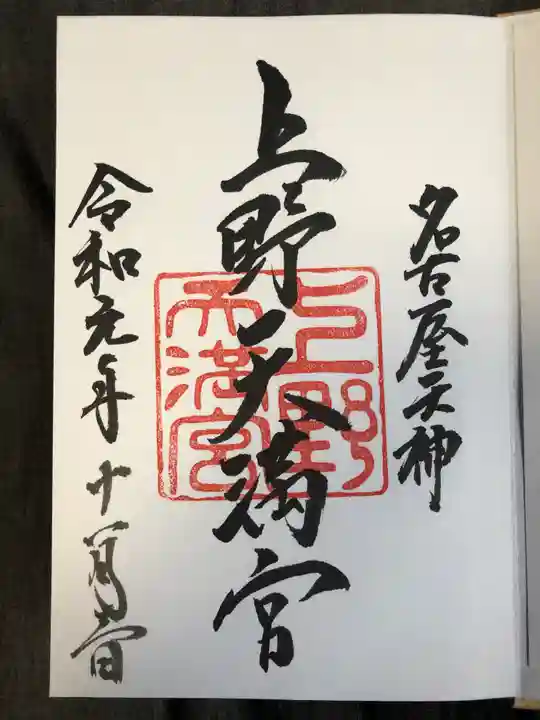 名古屋天神
上野天満宮
上野
天満宮
令和元年十一月日